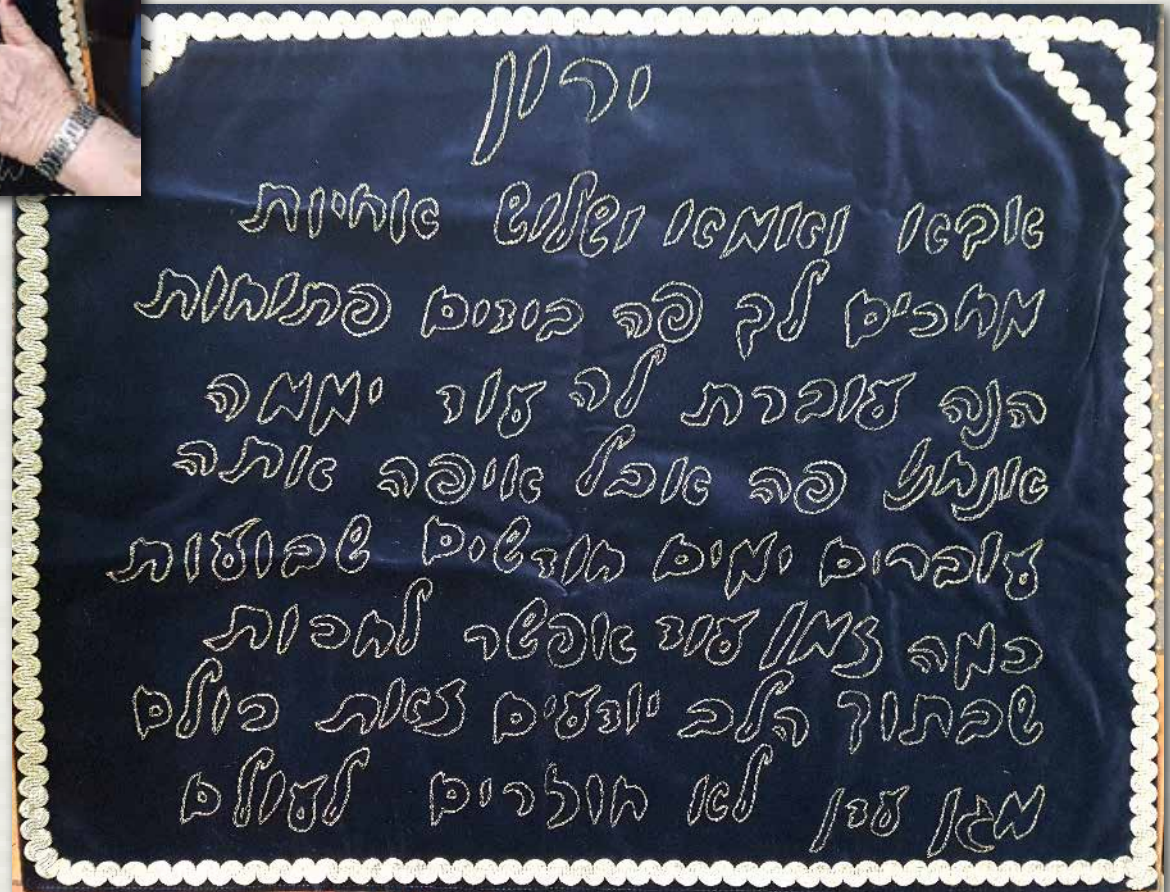 ירון
אבא ואמא ושלוש אחיות
מחכים לך פה בידים פתוחות
הנה עוברת לה עוד יממה
אנחנו פה אבל איפה אתה
עוברים ימים חודשים שבועות
כמה זמן עוד אפשר לחכות
שבתוך הלב יודעים זאת כולם
מגן עדן לא חוזרים לעולם